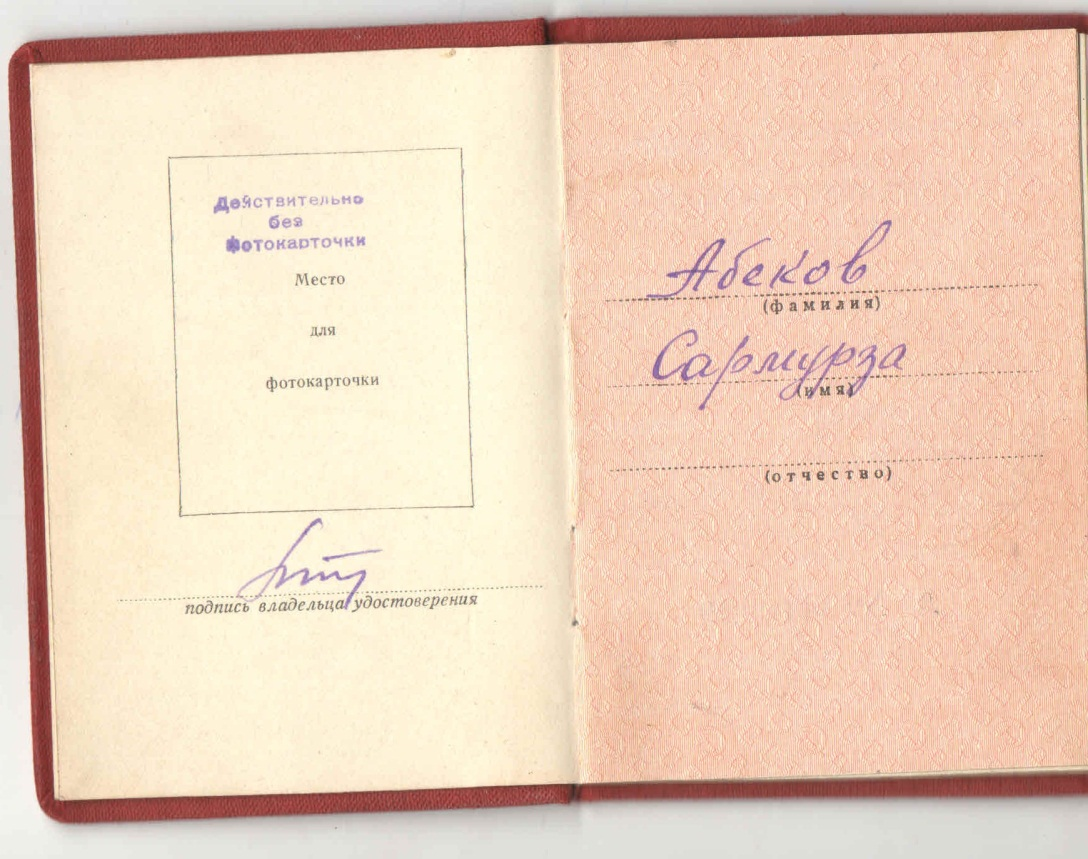 Действительно
без
фотокарточки
Место
для
фотокарточки
подпись владельца удостоверения
Абеков
(фамилия)
Сармурза
(имя)
(отчество)